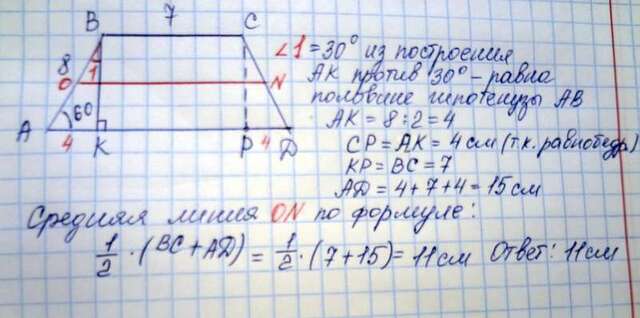 7
B C
8
1
O N
60°
A 4 K P 4 D
∠1 = 30° из построения
AK против 30° – равна
половине гипотенузы AB
AK = 8 : 2 = 4
CP = AK = 4 см (т.к. равнобедр)
KP = BC = 7
AD = 4 + 7 + 4 = 15 см
Средняя линия ON по формуле:
1/2 · (BC + AD) = 1/2 · (7 + 15) = 11 см Ответ: 11 см